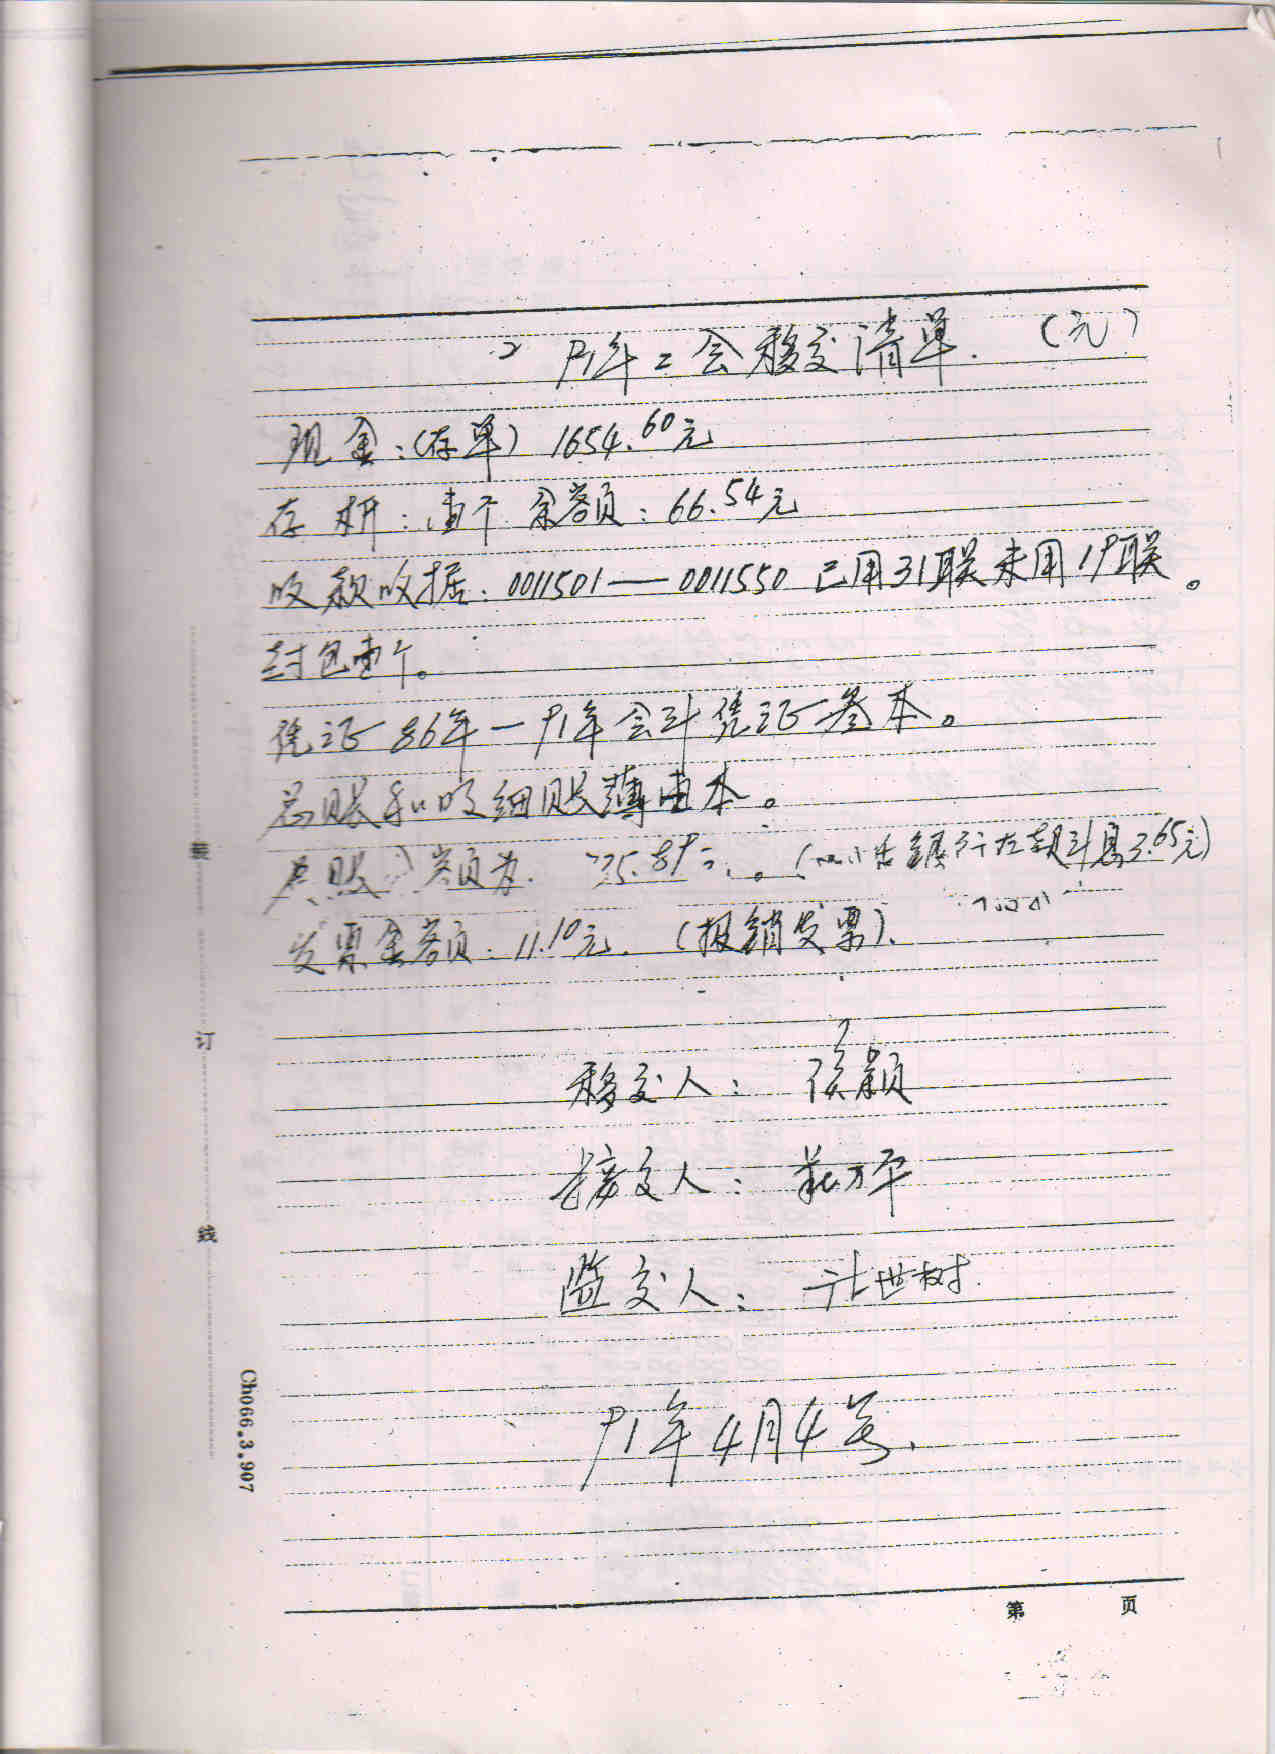 91年工会移交清单. (元)
现金:(存单) 1654.60元
存折:壹个 余额:66.54元
收款收据:0011501——0011550 已用31联未用19联。
封包壹个。
凭证 86年—91年会计凭证叁本。
总账和明细账薄壹本。
总账 额为. 25.89 。( 银行 利息3.65元)
发票金额:11.10元.(报销发票).
移交人: 侯颖
接交人: 万平
监交人: 杜世树.
91年4月4号.
装
订
线
Ch066.3.907
第 页